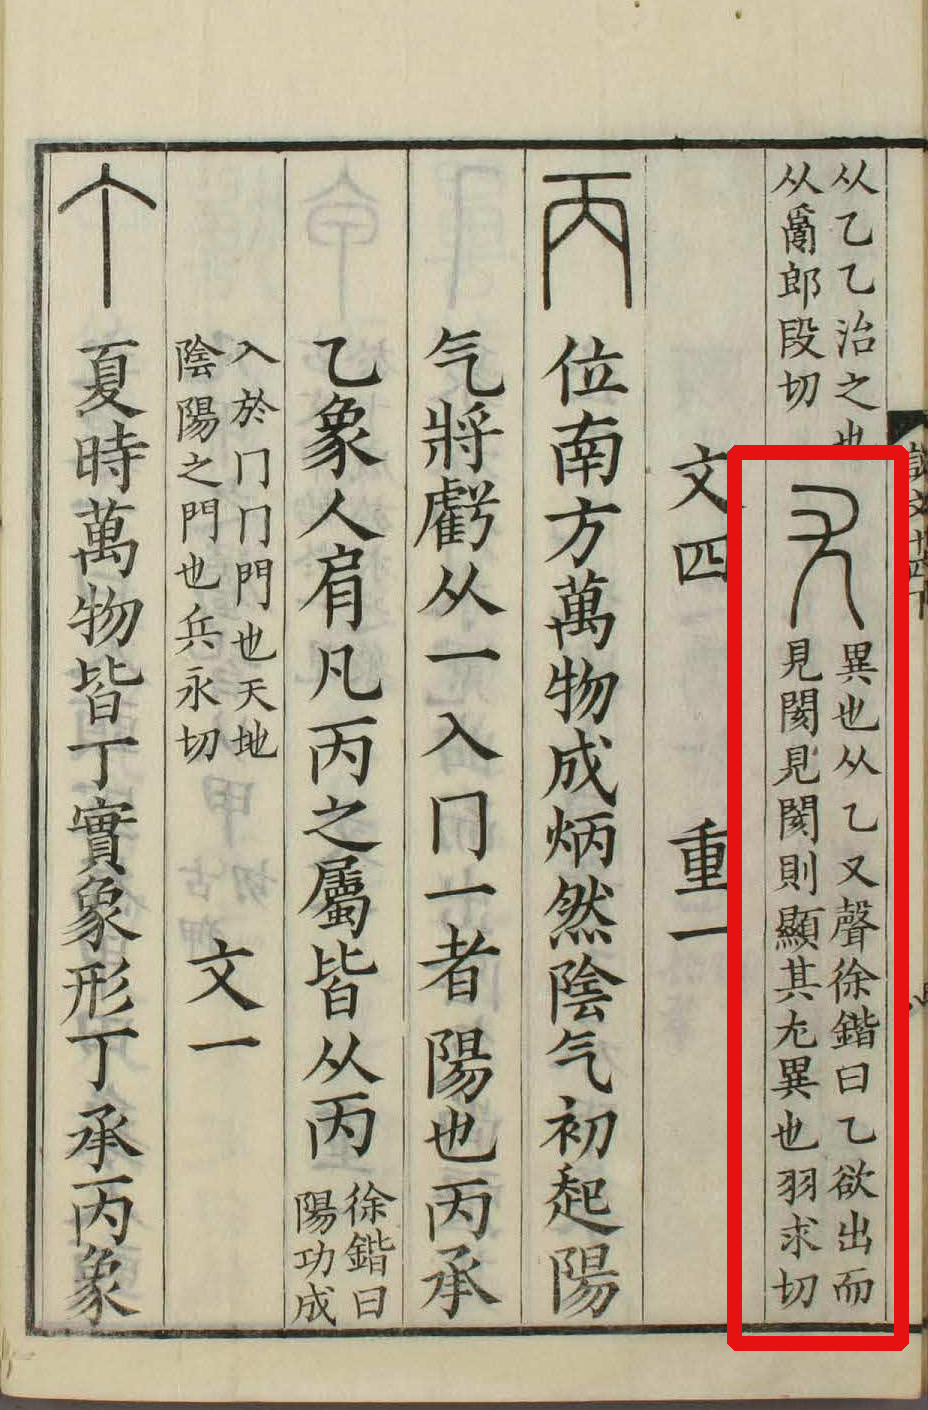 从乙乙治之也
从𤔔郎段切
尤
異也从乙又聲徐鍇曰乙欲出而
見閡見閡則顯其尢異也羽求切
文四 重一
丙 位南方萬物成炳然陰气初起陽
气將虧从一入冂一者陽也丙承
乙象人肩凡丙之屬皆从丙
徐鍇曰
陽功成
入於冂冂門也天地
陰陽之門也兵永切
文一
丁 夏時萬物皆丁實象形丁承丙象